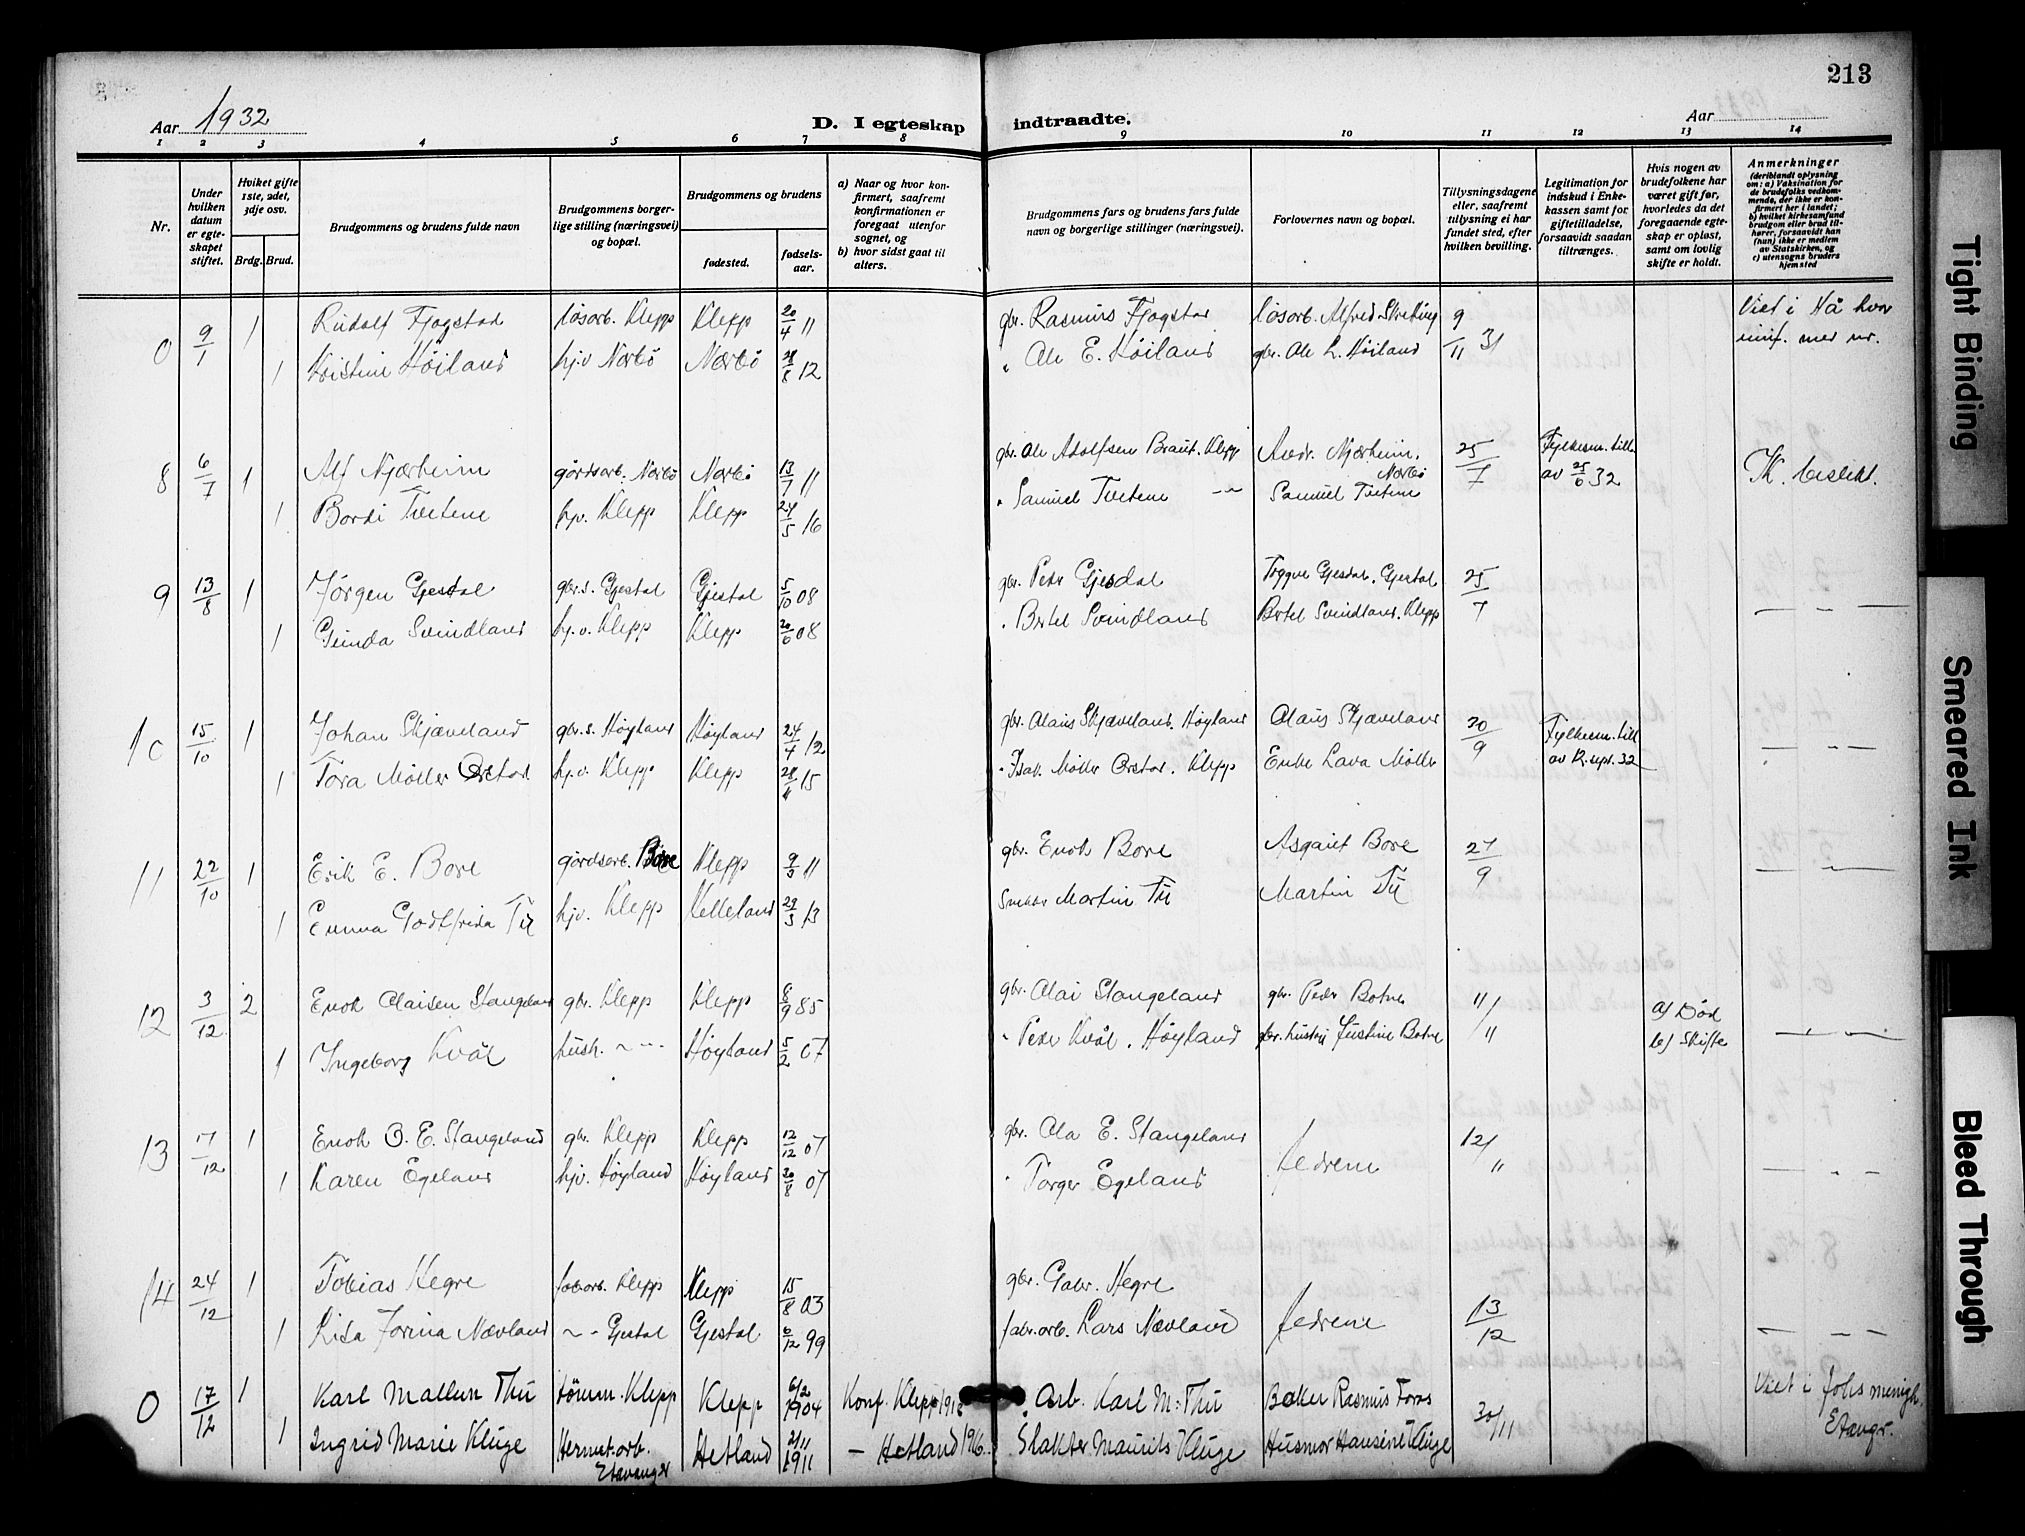 213
Aar 1932
D. I egteskap indtraadte.
Aar
1 2 3 4 5 6 7 8 9 10 11 12 13 14
Nr.
Under hvilken datum er egteskapet stiftet.
Hviket gifte 1ste, 2det, 3dje osv.
Brdg. Brud.
Brudgommens og brudens fulde navn
Brudgommens borgerlige stilling (næringsvei) og bopæl.
Brudgommens og brudens
fødested.
fødselsaar.
a) Naar og hvor konfirmert, saafremt konfirmationen er foregaat utenfor sognet, og
b) hvor sidst gaat til alters.
Brudgommens fars og brudens fars fulde navn og borgerlige stillinger (næringsvei).
Forlovernes navn og bopæl.
Tillysningsdagene eller, saafremt tillysning ei har fundet sted, efter hvilken bevilling.
Legitimation for indskud i Enkekassen samt for giftetilladelse, forsaavidt saadan tiltrænges.
Hvis nogen av brudefolkene har været gift før, hvorledes da det foregaaende egteskap er opløst, samt om lovlig skifte er holdt.
Anmerkninger
(deriblandt oplysning om: a) Vaksination for de brudefolks vedkommende, der ikke er konfirmert her i landet; b) hvilket kirkesamfund brudgom eller brud tilhører, forsaavidt han (hun) ikke er medlem av Statskirken, og c) utensogns bruders hjemsted
0 9/1 1 Rudolf Fjogstad løsarb. Klepp Klepp 20/4 11 gbr. Rasmus Fjogstad løsarb. Alfred Skretting 9/11 31 Viet i Hå hvor
1 Kristine Höiland hjv Nærbö Nærbö 28/8 12 " Ole E. Höiland gbr. Ole L. Höiland innf. med nr.
8 6/7 1 Alf Njærheim gårdsarb. Nærbö Nærbö 13/7 11 gbr. Ole Adolfsen Braut. Klepp Andr. Njærheim, Nærbö 25/7 Fylkesm. till. av 25/6 32 K. beslekt.
1 Bordi Tutene hjv. Klepp Klepp 24/5 16 " Samuel Tutene -"- Samuel Tutene
9 13/8 1 Jørgen Gjesdal gbr.s. Gjestal Gjestal 5/10 08 gbr. Peder Gjesdal Trygve Gjesdal. Gjestal 25/7 — " —
1 Gunda Svindland hj.v. Klepp Klepp 20/6 08 " Bertel Svindland Bertel Svindland. Klepp
10 15/10 1 Johan Skjæveland gbr.s. Høyland Høyland 24/4 12 gbr. Olaus Skjæveland. Høyland Olaus Skjæveland 20/9 Fylkesm. till. av 12. sept. 32 — " —
1 Tora Möller Orstad hj.v. Klepp Klepp 28/11 15 " Isak Möller Orstad. Klepp Enke Lava Möller
11 22/10 1 Erik E. Bore gårdsarb. Bore Klepp 9/3 11 gbr. Enok Bore Asgaut Bore 27/9 — " —
1 Emma Godtfrida Tu hjv. Klepp Helleland 29/3 13 Snekker Martin Tu Martin Tu
12 3/12 2 Enok Olaisen Stangeland gbr. Klepp Klepp 8/9 85 gbr. Olai Stangeland gbr. Peder Botne 11/11 a) Død — " —
1 Ingeborg Kvål hush. -"- Høyland 5/2 07 " Peder Kvål. Høyland gbr. hustru Justine Botne b) Skifte
13 17/12 1 Enok O. E. Stangeland gbr. Klepp Klepp 12/12 07 gbr. Ola E. Stangeland fedrene 12/11 — " —
1 Karen Egeland hjv. Høyland Høyland 30/8 07 " Torger Egeland
14 24/12 1 Tobias Hegre fabarb. Klepp Klepp 15/8 03 gbr. Gabr. Hegre fedrene 13/12 — " —
1 Lisa Jorina Nævland -"- Gjestal Gjestal 6/12 99 fabr.arb. Lars Nævland
0 17/12 1 Karl Mallun Thu tömm. Klepp Klepp 6/2 1904 Konf. Klepp 1918 Arb. Karl M. Thu Baker Rasmus Foros 30/11 Viet i Johs menigh.
1 Ingrid Marie Kluge Hermet.arb. Stavanger Hetland 2/11 1911 — Hetland 1916. Slakter Maurits Kluge Husmor Hansine Kluge Stavgr.
Tight Binding
Smeared Ink
Bleed Through